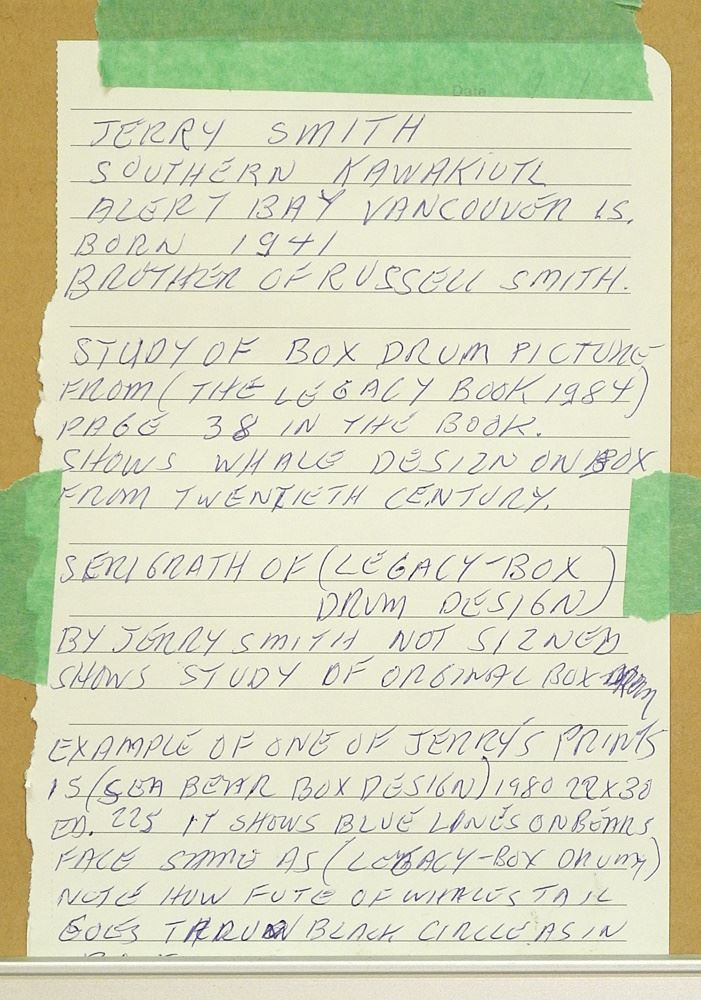 Date / /
JERRY SMITH
SOUTHERN KAWAKIUTL
ALERT BAY VANCOUVER IS.
BORN 1941
BROTHER OF RUSSELL SMITH.
STUDY OF BOX DRUM PICTURE
FROM (THE LEGACY BOOK 1984)
PAGE 38 IN THE BOOK.
SHOWS WHALE DESIGN ON BOX
FROM TWENTIETH CENTURY.
SERIGRATH OF (LEGACY-BOX
DRUM DESIGN)
BY JERRY SMITH NOT SIGNED
SHOWS STUDY OF ORGINAL BOX DRUM
EXAMPLE OF ONE OF JERRY'S PRINTS
IS (SEA BEAR BOX DESIGN) 1980 22X30
ED. 225 IT SHOWS BLUE LINES ON BEARS
FACE SAME AS (LEGACY-BOX DRUM)
NOTE HOW FUTE OF WHALES TAIL
GOES THRU BLACK CIRCLE AS IN